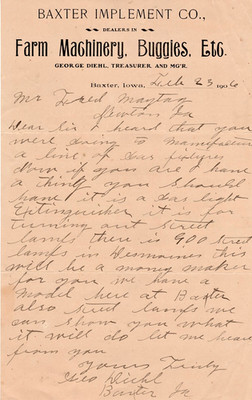 BAXTER IMPLEMENT CO.,
DEALERS IN
Farm Machinery, Buggies, Etc.
GEORGE DIEHL, TREASURER, AND MG'R.
Baxter, Iowa, Feb 23 1906
Mr Fred Maytag
Newton Ia
Dear Sir I heard that you
were going to manufacture
a line of Gas fixtures
Now if you are I have
a thing you should
have it is a Gas light
Extinguisher it is for
turning out Street
lamps there is 900 Street
lamps in Desmoines this
will be a money maker
for you we have a
Model here at Baxter
also Street lamps we
can show you what
it will do let me hear
from you
Yours Truly
Geo Diehl
Baxter Ia